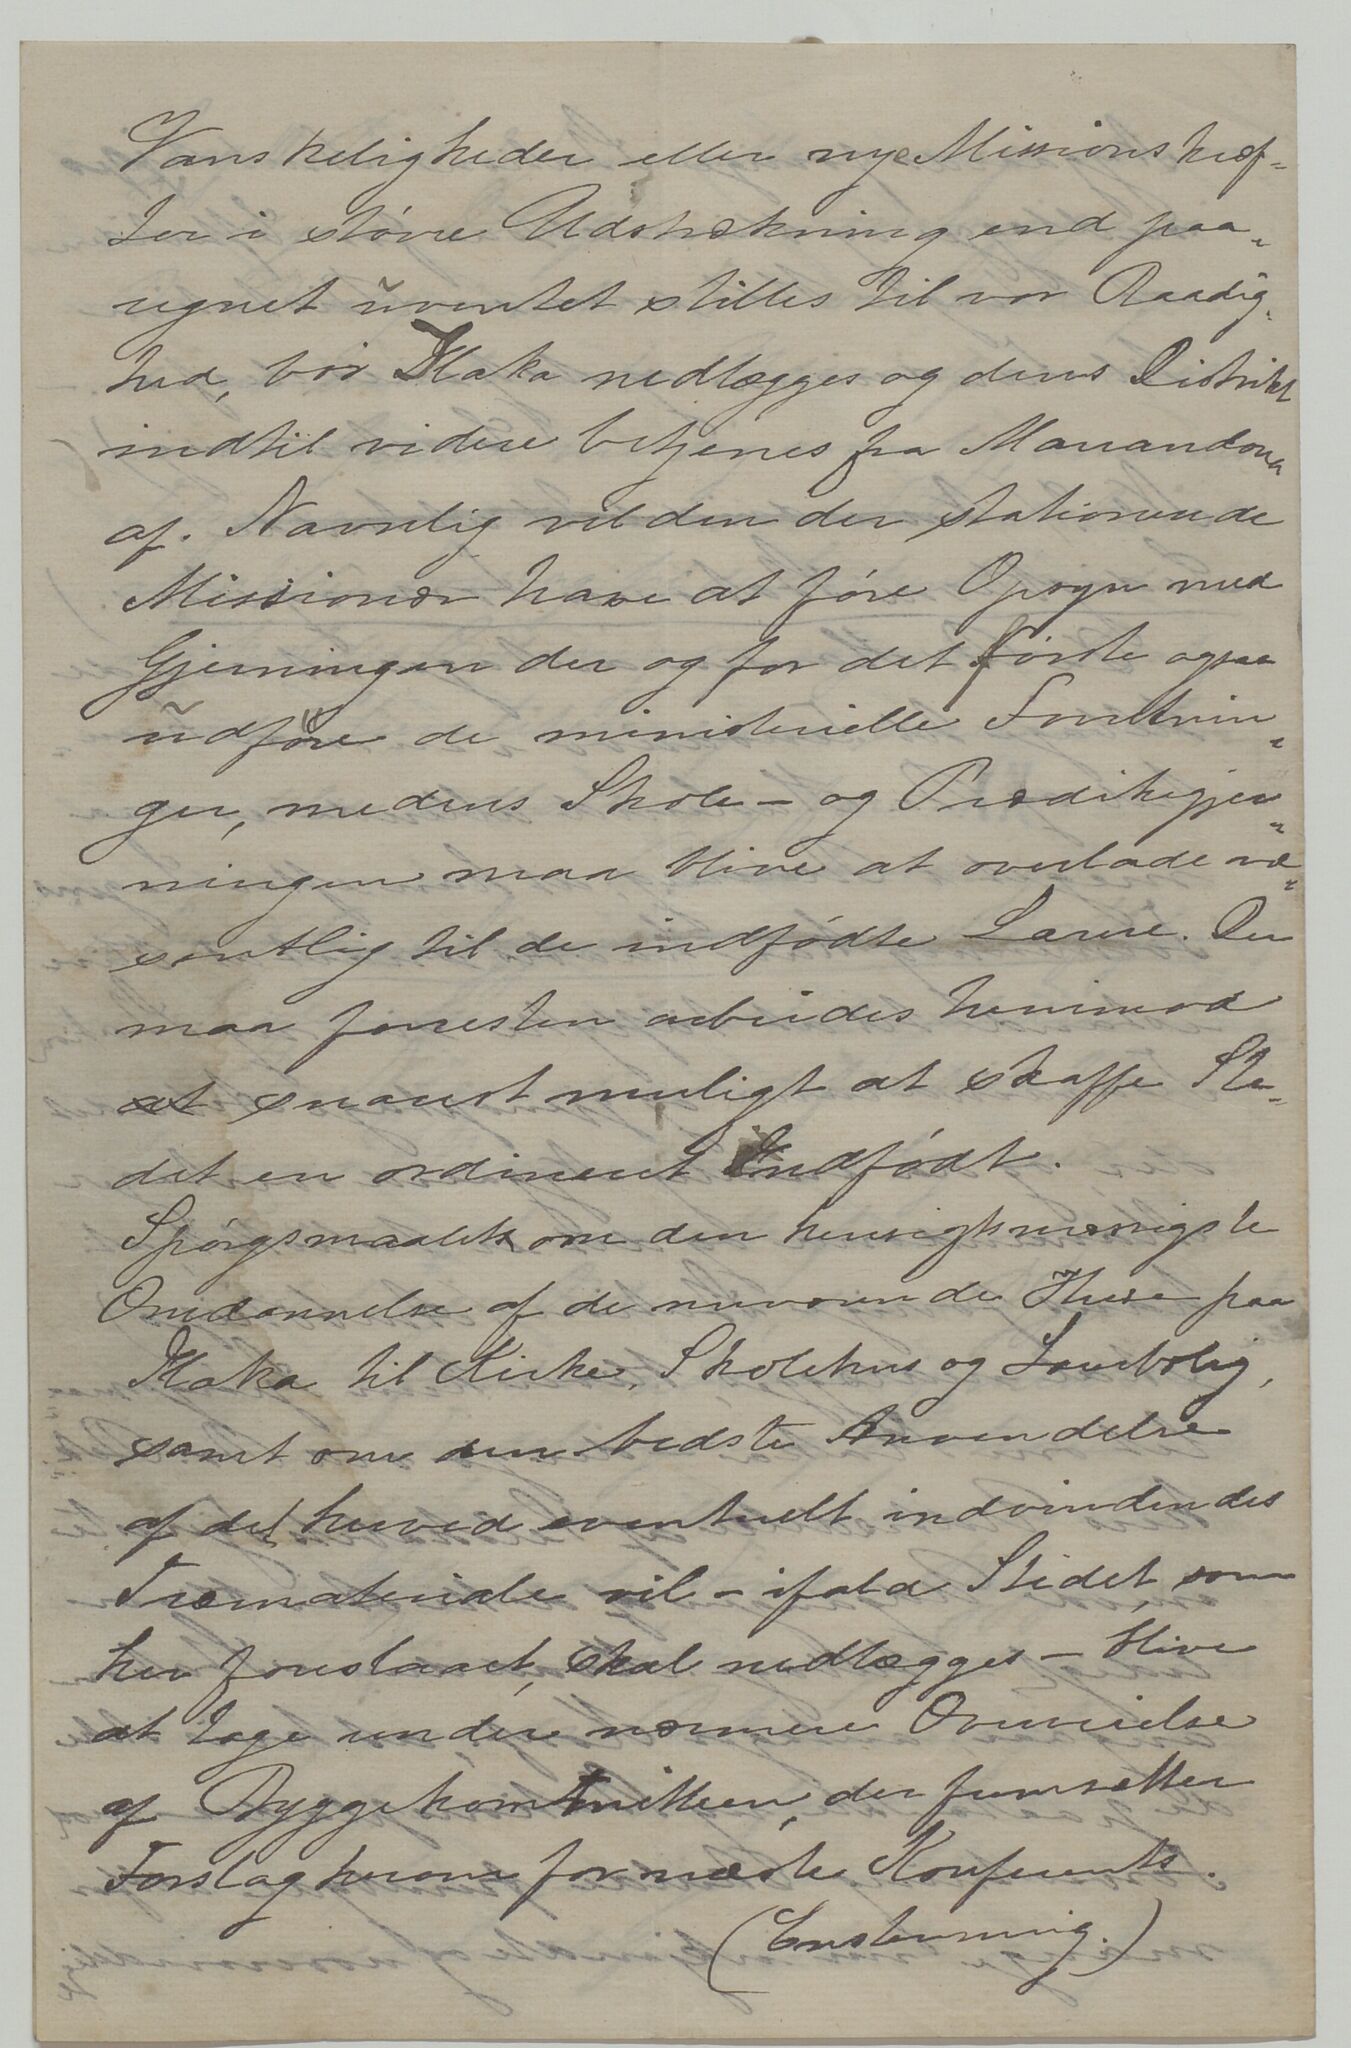 Vanskeligheder eller nye Missionskræf-
ter i större Udstrækning end paa-
regnet uventet stilles til vor Raadig-
hed, bör Ilaka nedlægges og dens Distrikt
indtil videre betjenes fra Manandona
af. Navnlig vil den der stationerede
Missionær have at före Opsyn med
Gjerningen der og for det Förste ogsaa
udföre de ministerielle Forretnin-
ger, medens Skole- og Prædikegjer-
ningen maa blive at overlade væ-
sentlig til de indfödte Lærere. Der
maa forresten arbeides henimod
snarest muligt at skaffe Ste-
det en ordineret Indfödt.
Spörgsmaalet om den hensigtsmæssigste
Omdannelse af de nuværende Huse paa
Ilaka til Kirke, Skolehus og Lærerbolig,
samt om den bedste Anvendelse
af det herved eventuelt indvindendes
Træmateriale vil - ifald Stedet, som
her foreslaaet, skal nedlægges - blive
at tage under nærmere Overveielse
af Byggekommitteen, der fremsætter
Forslag herom for næste Konferents.
(Enstemmig.)